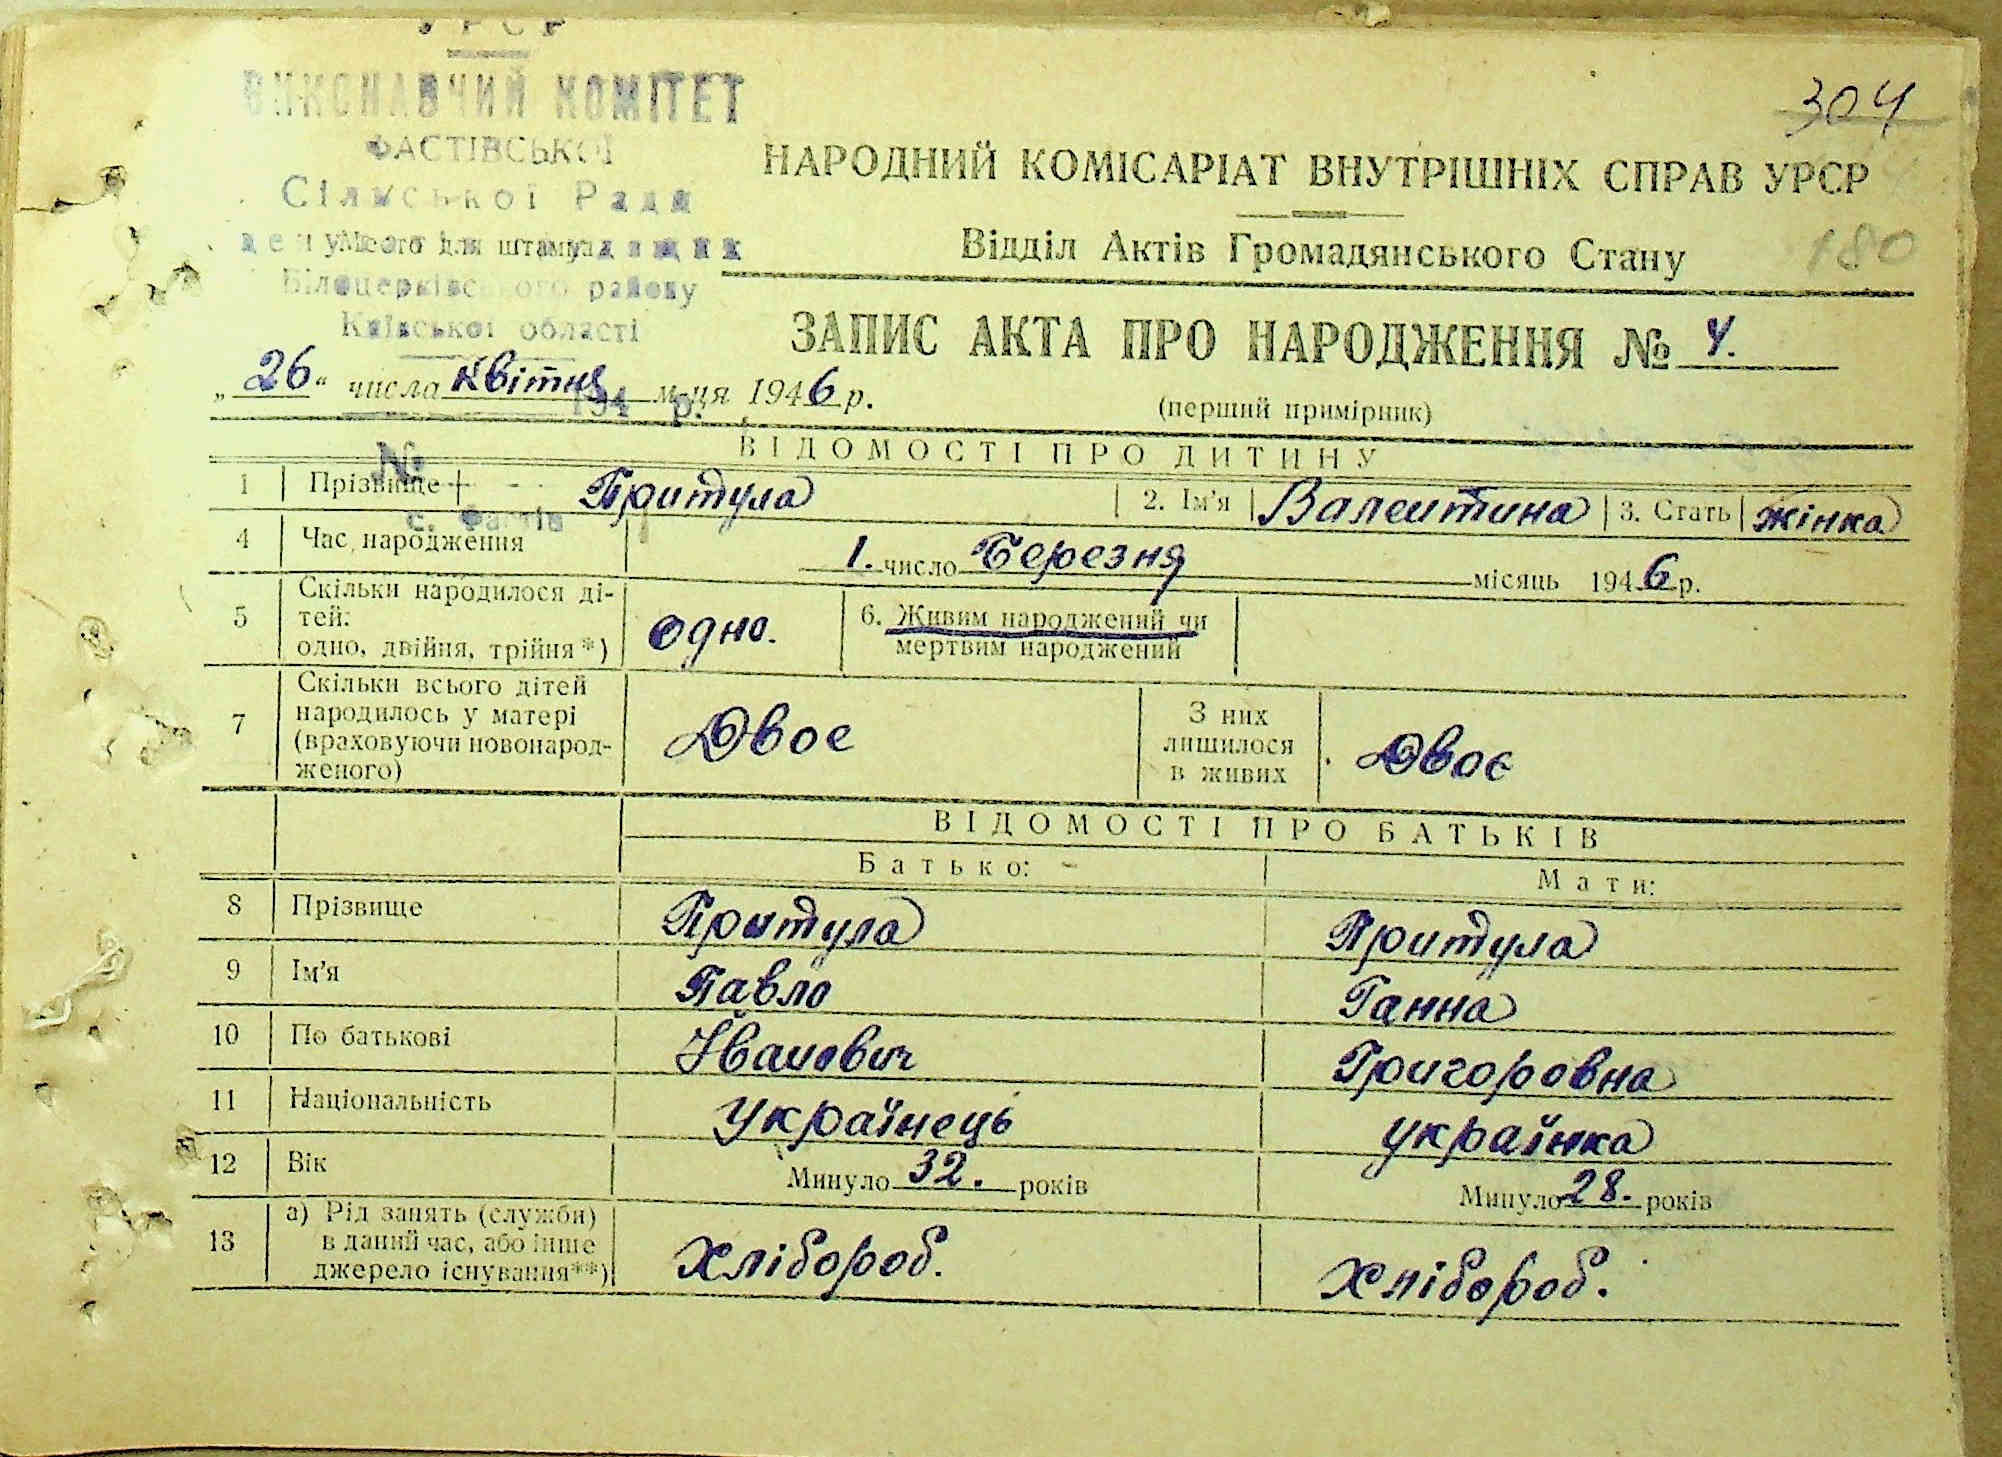 УРСР
ВИКОНАВЧИЙ КОМІТЕТ
ФАСТІВСЬКОЇ
Сільської Ради
Місто для штампа
Білоцерківського району
Київської області
194 р.
№
с. Фастів
304
180
НАРОДНИЙ КОМІСАРІАТ ВНУТРІШНІХ СПРАВ УРСР
Відділ Актів Громадянського Стану
ЗАПИС АКТА ПРО НАРОДЖЕННЯ № 4.
„26“ числа квітня м-ця 1946 р.
(перший примірник)
ВІДОМОСТІ ПРО ДИТИНУ
1 Прізвище Притула 2. Ім'я Валентина 3. Стать жінка
4 Час народження 1. число Березня місяць 1946 р.
5 Скільки народилося ді-
тей:
одно, двійня, трійня*) одно. 6. Живим народжений чи
мертвим народжений
7 Скільки всього дітей
народилось у матері
(враховуючи новонарод-
женого) Двое З них
лишилося
в живих Двоє
ВІДОМОСТІ ПРО БАТЬКІВ
Батько: Мати:
8 Прізвище Притула Притула
9 Ім'я Павло Ганна
10 По батькові Іванович Григоровна
11 Національність Українець українка
12 Вік Минуло 32. років Минуло 28. років
13 а) Рід занять (служби)
в даний час, або інше
джерело існування**) Хлібороб. Хлібороб.